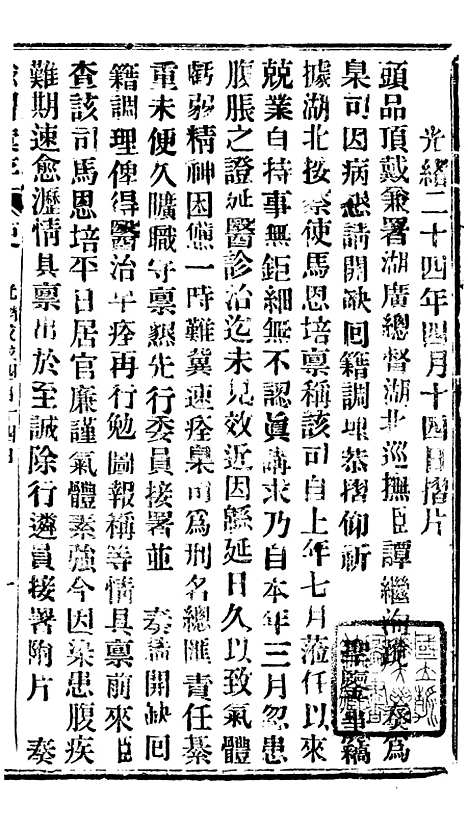 光緒二十四年四月十四日摺片
頭品頂戴兼署湖廣總督湖北巡撫臣譚繼洵跪 奏爲
臬司因病懇請開缺回籍調理恭摺仰祈
聖鑒事竊
據湖北按察使馬恩培稟稱該司自上年七月蒞任以來
兢業自持事無鉅細無不認眞講求乃自本年三月忽患
腹脹之證延醫診治迄未見效近因緜延日久以致氣體
虧弱精神困憊一時難冀速痊臬司爲刑名總匯責任綦
重未便久曠職守稟懇先行委員接署並 奏請開缺回
籍調理俾得醫治早痊再行勉圖報稱等情具稟前來臣
查該司馬恩培平日居官廉謹氣體素強今因染患腹疾
難期速愈瀝情具稟出於至誠除行遴員接署附片 奏